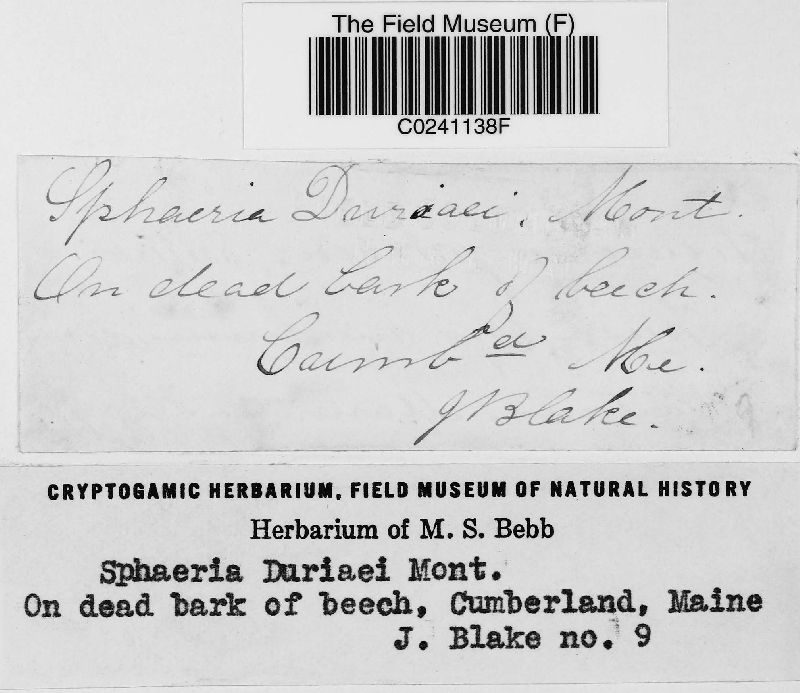 The Field Museum (F)
C0241138F
Sphaeria Duriaei. Mont.
On dead bark of beech.
Cumb^d Me.
J Blake.
CRYPTOGAMIC HERBARIUM, FIELD MUSEUM OF NATURAL HISTORY
Herbarium of M. S. Bebb
Sphaeria Duriaei Mont.
On dead bark of beech, Cumberland, Maine
J. Blake no. 9